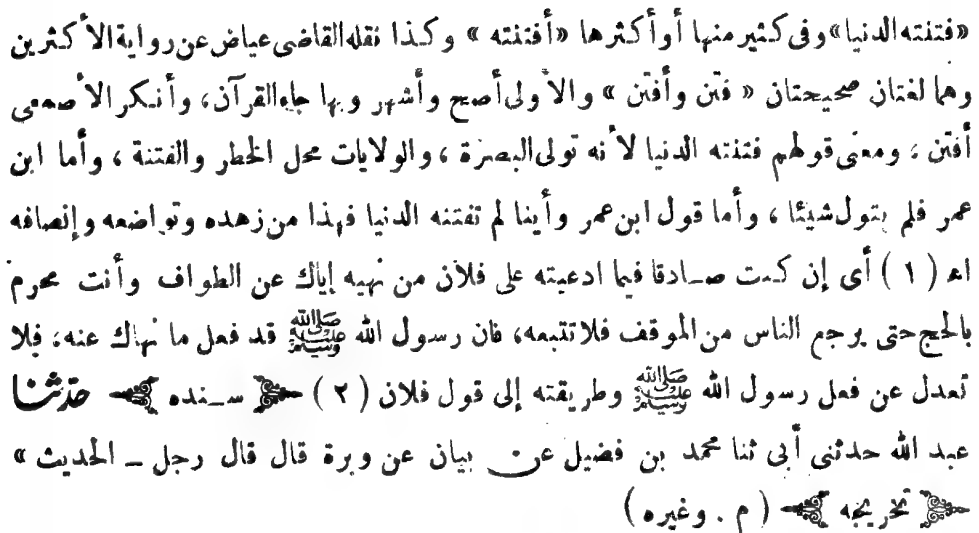 «فتنته الدنيا» وفى كثير منها أو أكثرها «أفتنته » وكذا نقله القاضى عياض عن رواية الأكثرين
وهما لغتان صحيحتان « فتن وأفتن » والأولى أصح وأشهر وبها جاء القرآن، وأنكر الأصمعى
أفتن ؛ ومعنى قولهم فتنته الدنيا لأنه تولى البصرة ، والولايات محل الخطر والفتنة ، وأما ابن
عمر فلم يتول شيئا ، وأما قول ابن عمر وأينا لم تفتنه الدنيا فهذا من زهده وتواضعه وإنصافه
اه ( ١ ) أى إن كنت صادقا فيما ادعيته على فلان من نهيه إياك عن الطواف وأنت محرم
بالحج حتى يرجع الناس من الموقف فلا تتبعه، فان رسول الله ﷺ قد فعل ما نهاك عنه، فلا
تعدل عن فعل رسول الله ﷺ وطريقته إلى قول فلان ( ٢ ) ﴿ سنده ﴾ حدثنا
عبد الله حدثنى أبى ثنا محمد بن فضيل عن بيان عن وبرة قال قال رجل ــ الحديث »
﴿ تخريجه ﴾ ( م . وغيره )